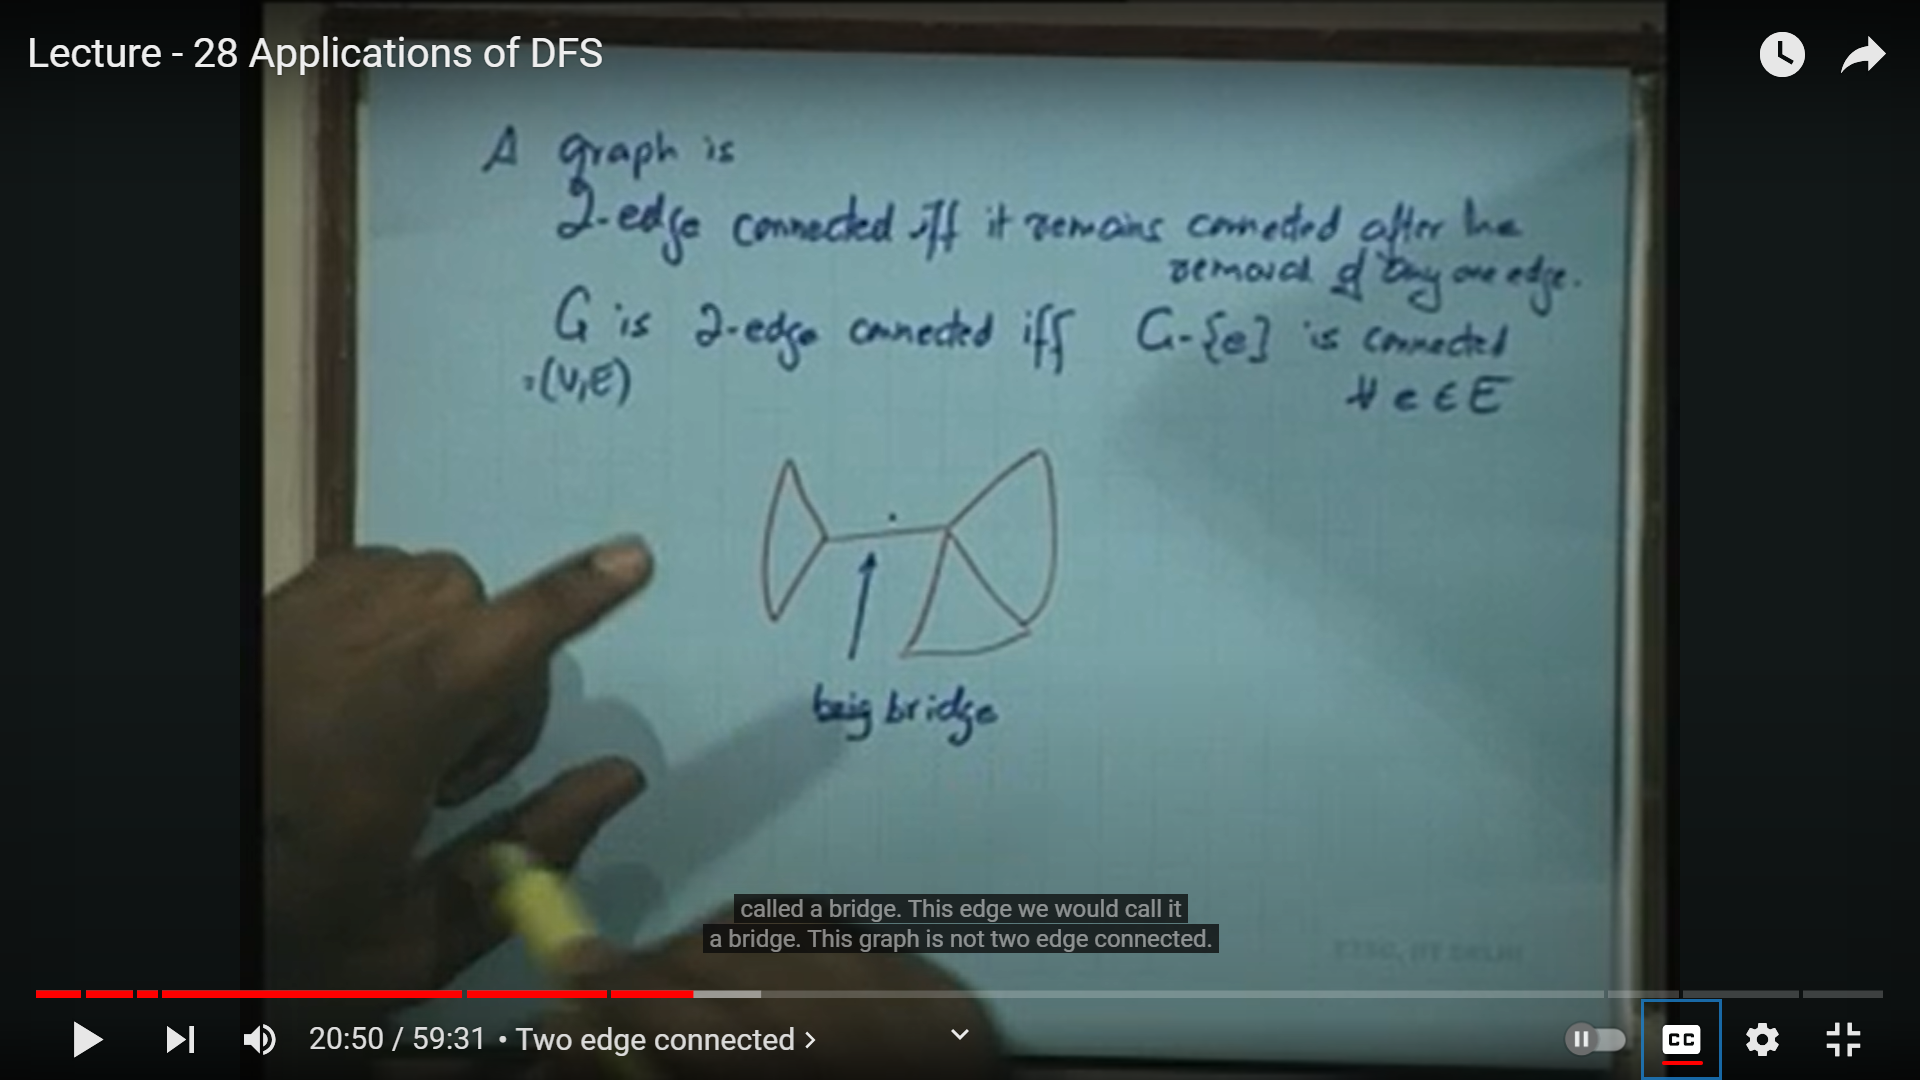 Lecture - 28 Applications of DFS
A graph is
2-edge connected iff it remains connected after the
removal of any one edge.
G is 2-edge connected iff G-{e} is connected
=(V,E)
∀ e ∈ E
bridge
called a bridge. This edge we would call it
a bridge. This graph is not two edge connected.
20:50 / 59:31 • Two edge connected >
CC